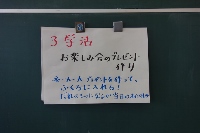 3 学活
お楽しみ会のプレゼント
作り
一人一人プレゼントを作って、
ふくろに入れる!